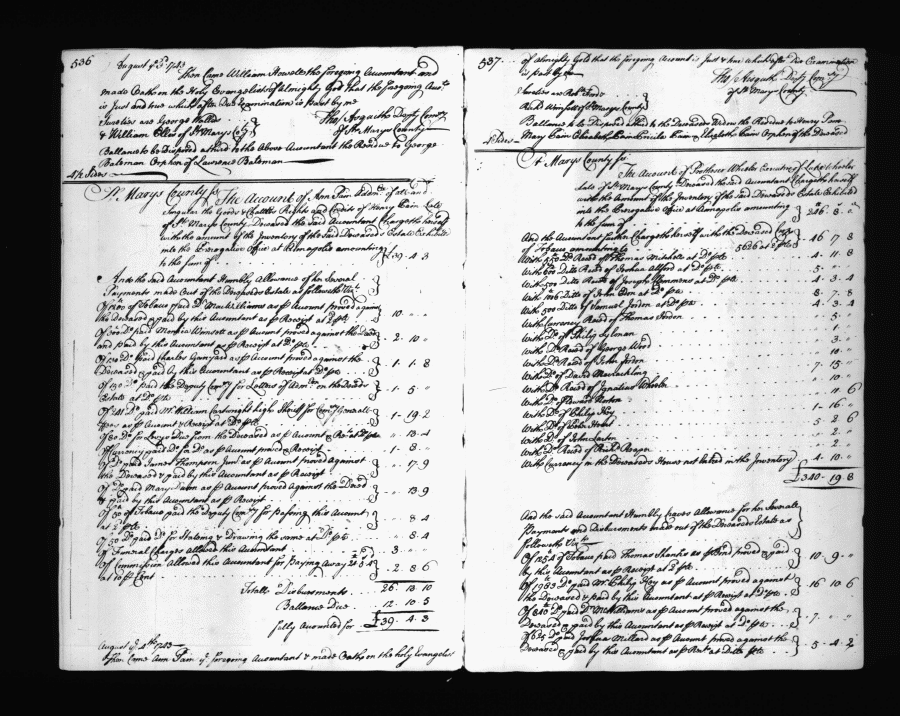 536
August ye 3d 1743
Then Came William Howells the foregoing Accountant and
made Oath on the Holy Evangelists of Almighty God that the foregoing Acct
is Just and true which after Due Examination is Past by me
Sureties are George
& William of St Marys Coty
Thos Aisquith Depty Comry
of St Marys County
Ballance to be Disposed a third to the Above Accountant the Residue to George
Bateman Orphan of Laurence Bateman
4½ Sides
St Marys County ss The Account of Ann Pain of all and
Singular the Goods & Chattles Rights and Credits of Henry Pain Late
of St Marys County Deceased the said Accountant Chargeth herself
with the amount of the Inventory of the said Deceaseds Estate Exhibited
into the Prerogative Office at Annapolis amounting
to the Sum of £39.. 4.. 3
And the said Accountant Humbly Allowance of her Several
Payments made Out of the Deceaseds Estate as followeth Vizt
Of Tobacco paid Dr Macwilliams as pr Account proved against
the Deceased & paid by this Accountant as pr Receipt at Do pCt 10 " "
Of Do paid Winsett as pr Account proved against the Deced
and paid by this Accountant as pr Receipt at Do pCt " 2 . 10 "
Of Do paid Charles Ganyard as pr Account proved against the
Deceased & paid by this Accountant as pr Receipt at Do pCt 1 . 1 . 8
Of 150 Do paid the Deputy Comry for Letters of Admn on the Deceds
Estate at Do pCt 1 . 5 "
Of 281 Do paid Mr William Cartwright high Sheriff for Comry Generalls
Fees as pr Account & Receipt at Do pCt 1 . 19 . 2
Of 80 Do for Levys Due from the Deceased as pr Account & Rect at Do pCt " 13 . 4
Of Currency paid Do as pr Account proved & Receipt 1 . 8 "
Of Do paid James Thompson Junr as pr Account proved against
the Deceased & paid by this Accountant as pr Receipt " 17 . 9
Of Do paid Mary as pr Account proved against the Deced
& paid by this Accountant as pr Receipt " 13 9
Of 50 of Tobacco paid the Deputy Comry for passing this Account
at Do pCt " 8 4
Of 50 Do paid Do for Stating & Drawing the same at Do pCt " 8 . 4
Of Funeral Charges Allowed this Accountant 3 " "
Of Commission Allowed this Accountant for Paying Away
at 10 pr Cent 2 8 6
Totall Disbursments 26 . 13 10
Ballance Due 12 . 10 5
fully Accounted for £39 . 4 . 3
August ye 4th 1743
Then Came Ann Pain ye foregoing Accountant & made Oath on the holy Evangelists
537
of Almighty God that the foregoing Account is Just & true which after Due Examination
is Past by me
Thos Aisquith Depty Comry
of St Marys County
Sureties are
Richd Winsett of St Marys County
Ballance to be Disposed a third to the Deceaseds Widow the Residue to Henry Pain
Mary Pain Elizabeth Pain Pain & Elizabeth Pain Orphans of the Deceased
4 Sides
St Marys County ss
The Account of Wheeler Executor of Wheeler
Late of St Marys County Deceased the said Accountant Chargeth herself
with the Amount of the Inventory of the said Deceaseds Estate Exhibited
into the Prerogative Office at Annapolis amounting
to the Sum of 246 . 8 . "
And the Accountant further Chargeth herself with the Deceaseds Crop
of Tobacco amounting to 5626 at Do pCt 46 17 8
With 550 Do Recd of Thomas Mitchell at Do pCt 4 . 11 8
With 600 Ditto Recd of Joshua Alford at Do pCt 5 . " "
With 500 Ditto Recd of Joseph Clemmens at Do pCt 4 . 3 . 4
With Ditto of John at Do pCt 8 . 7 . 8
With 500 Ditto of Samuel Jordan at Do pCt 4 . 3 . 4
With Currency Recd of Thomas " 5 . "
With Do of Philip " 1 . "
With Do Recd of George Ward " 3 . "
With Do Recd of John " 10 . "
With Do of David 7 . 15 "
With Do Recd of Ignatius Wheeler " 10 "
With Do of Barton " 11 6
With Do of Philip Key 1 . 16 "
With Do of John 5 2 6
With Do of John " 2 "
With Do Recd of Richd " 2 "
With Currency in the Deceaseds House not listed in the Inventory 4 . 10 "
£340 . 19 8
And the said Accountant Humbly Craves Allowance for her Severall
Payments and Disbursments made out of the Deceaseds Estate as
followeth Vizt
Of Tobacco paid Thomas as pr Bond proved & paid
by this Accountant as pr Receipt at Do pCt 10 . 9 . "
Of 1983 Do paid Mr Philip Key as pr Account proved against
the Deceased & paid by this Accountant as pr Receipt at Do pCt 16 10 . 6
Of Do paid Dr McWilliams as pr Account proved against the
Deceased & paid by this Accountant as pr Receipt at Do pCt " 7 . "
Of 625 Do paid Joshua Millard as pr Account proved against the
Deceased & paid by this Accountant as pr Rect at Ditto pCt 5 . 4 . 2